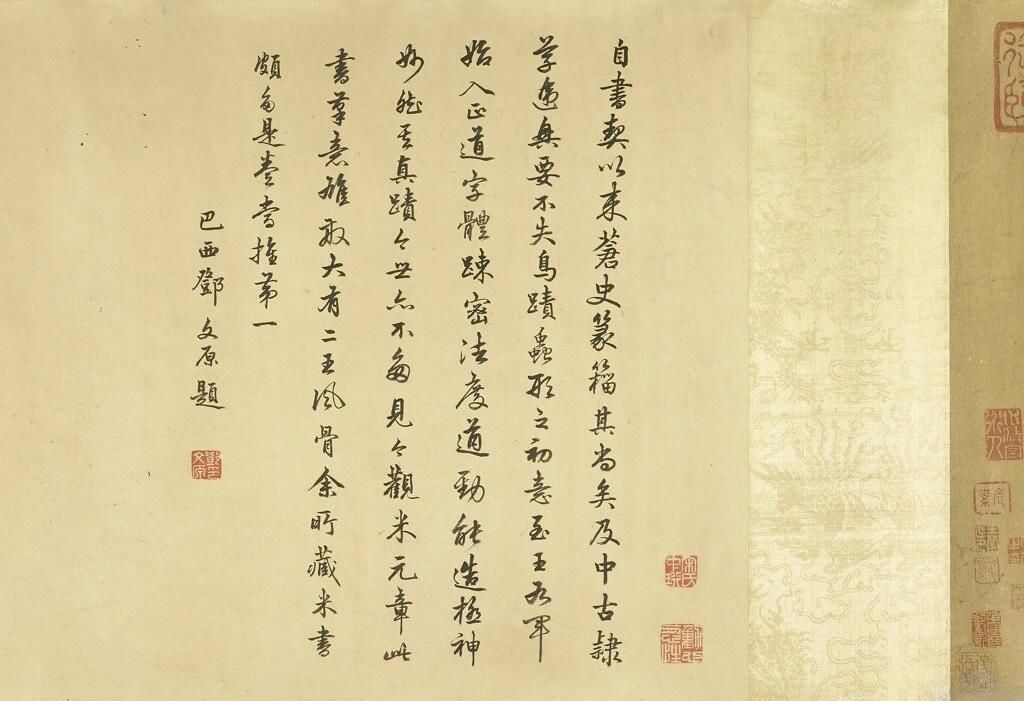 自書契以來蒼史篆籀其尚矣及中古隸
草迭興要不失鳥蹟蟲形之初意至王右軍
始入正道字體踈密法度遒勁能造極神
妙然其真蹟今世亦不多見今觀米元章此
書筆意雄放大有二王風骨余所藏米書
頗多是卷當推第一
巴西鄧文原題